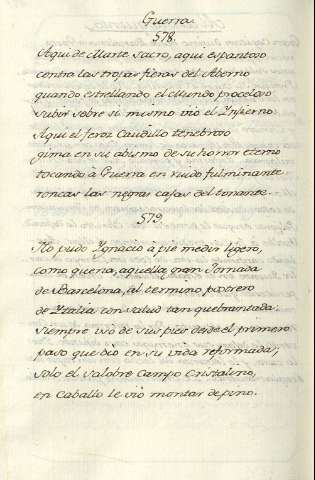 Guerra.
578.
Aqui de Marte sacro, aqui espantoso
contra las tropas fieras del Aberno
quando estrellando el Mundo proceloso
subir sobre si mismo vio el Infierno
Aqui el feroz Caudillo tenebroso
gima en su abismo de su horror eterno
tocando à Guerra en ruido fulminante
roncas las negras cajas del tonante.
579.
No pudo Ygnacio à pie medir ligero,
como queria, aquella gran Jornada
de Barcelona, al termino postrero
de Ytalia con salud tan quebrantada:
siempre usò de sus pies desde el primero
paso que dio en su vida reformada;
solo el salobre campo Cristalino,
en Caballo le viò montar de pino.